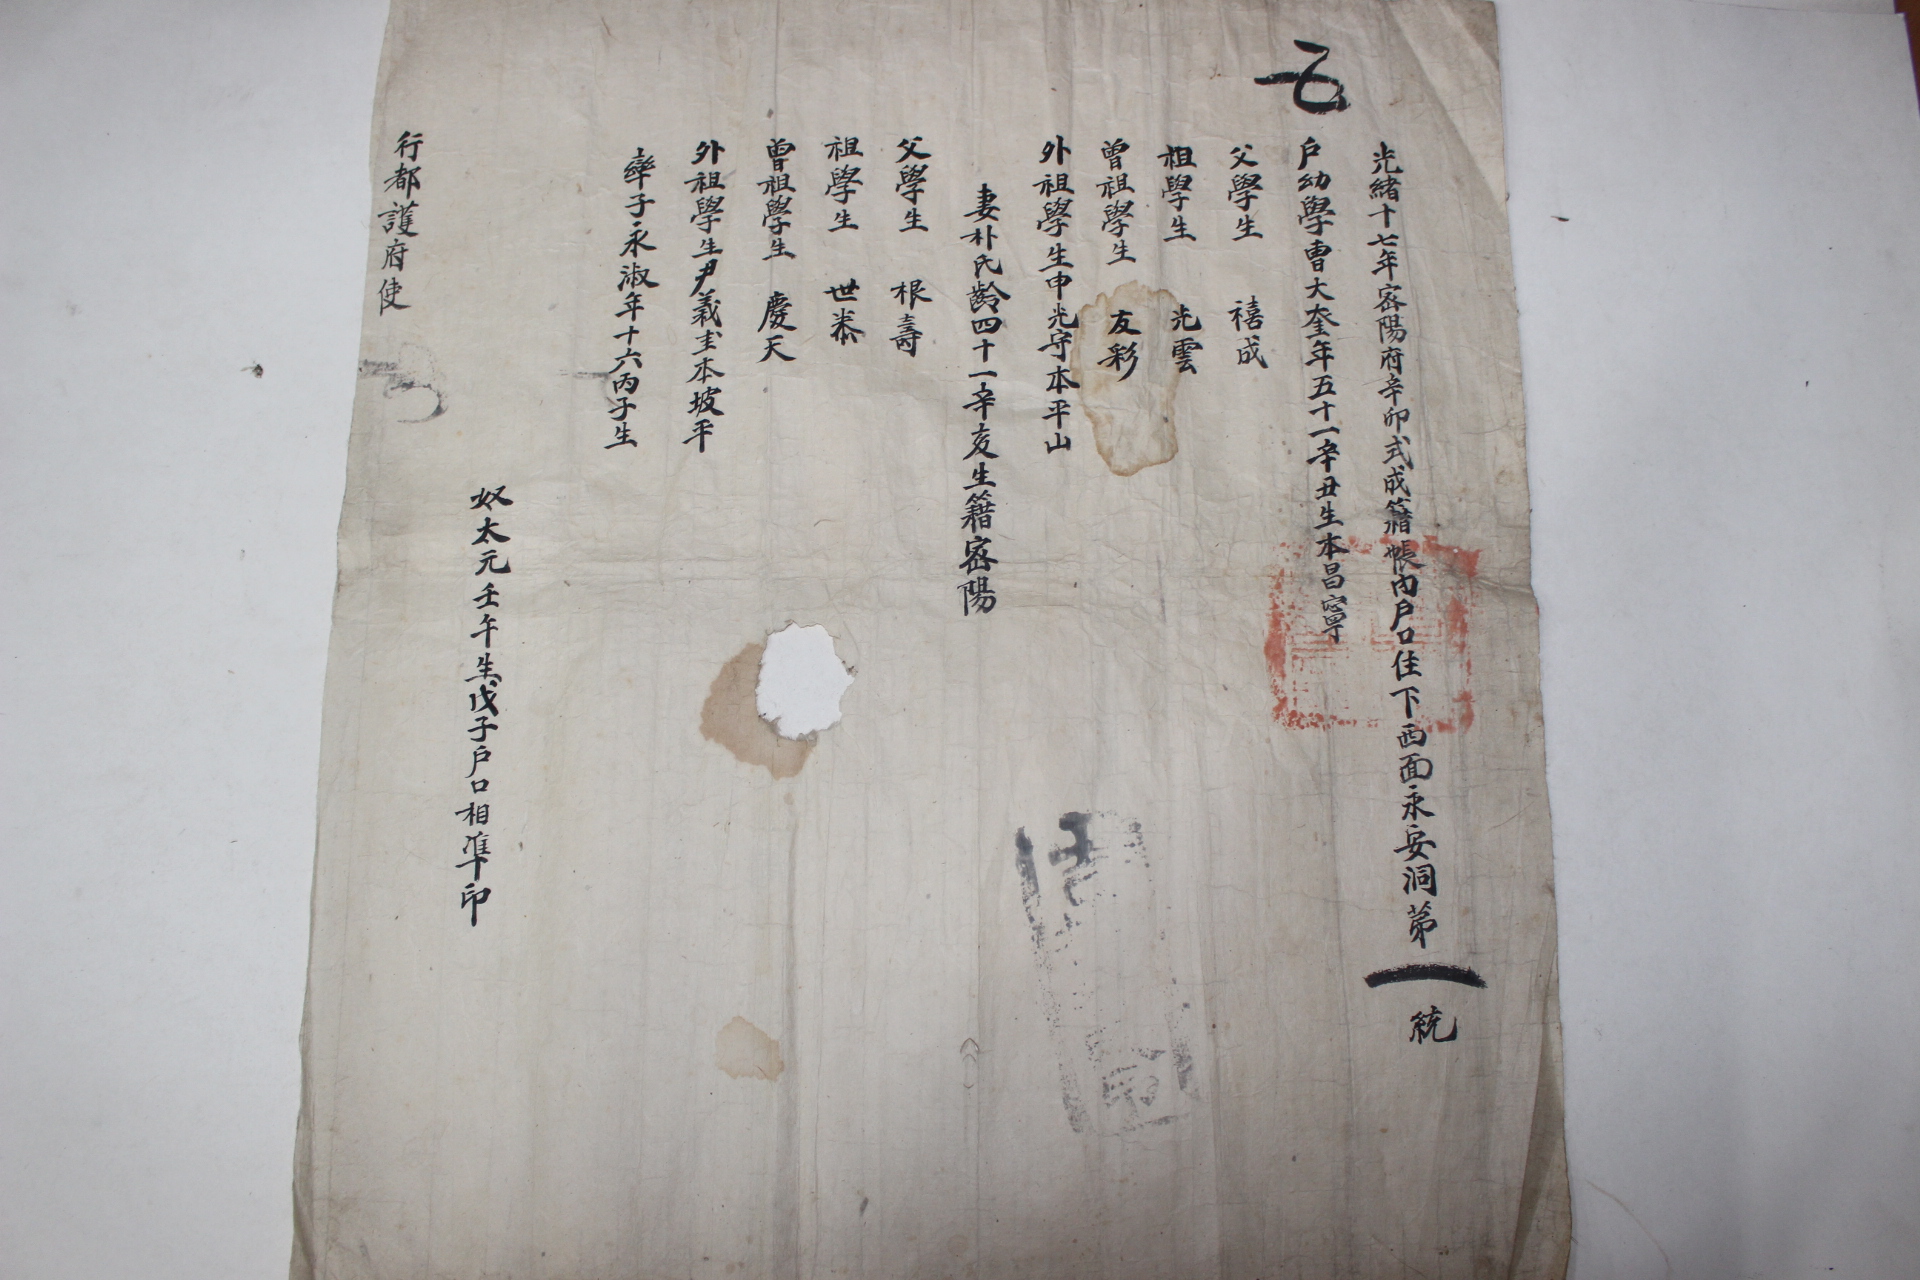 光緒十七年密陽府辛卯式成籍帳內戶口住下西面永安洞第一統
五
戶幼學曺大奎年五十一辛丑生本昌寧
父學生 禧成
祖學生 光雲
曾祖學生 友彩
外祖學生申光守本平山
妻朴氏齡四十一辛亥生籍密陽
父學生 根壽
祖學生 世泰
曾祖學生 慶天
外祖學生尹義圭本坡平
率子永淑年十六丙子生
奴太元壬午生戊子戶口相準印
行都護府使